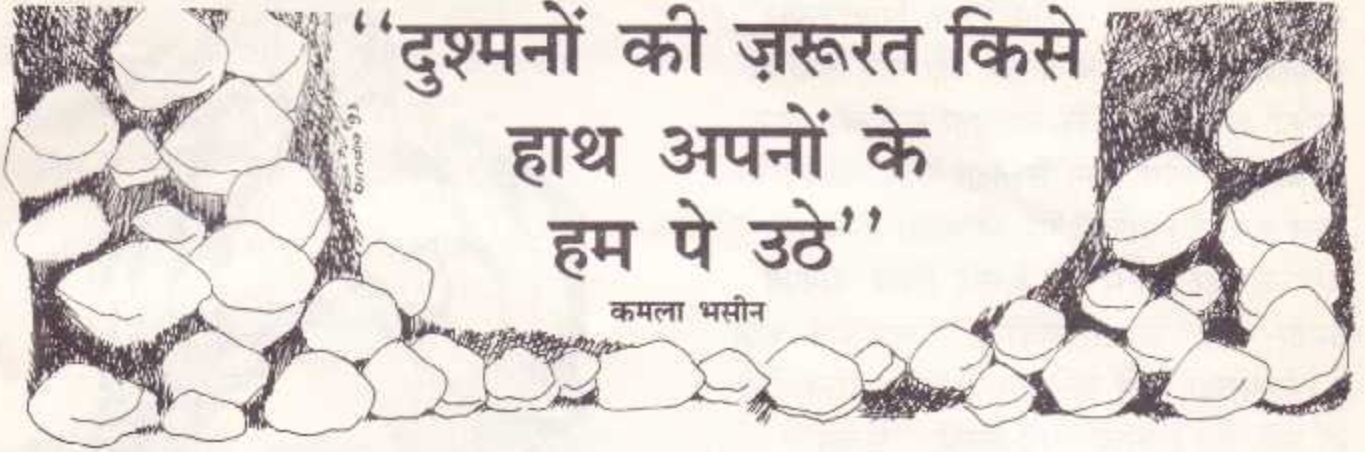 “दुश्मनों की ज़रूरत किसे
हाथ अपनों के
हम पे उठे”
कमला भसीन